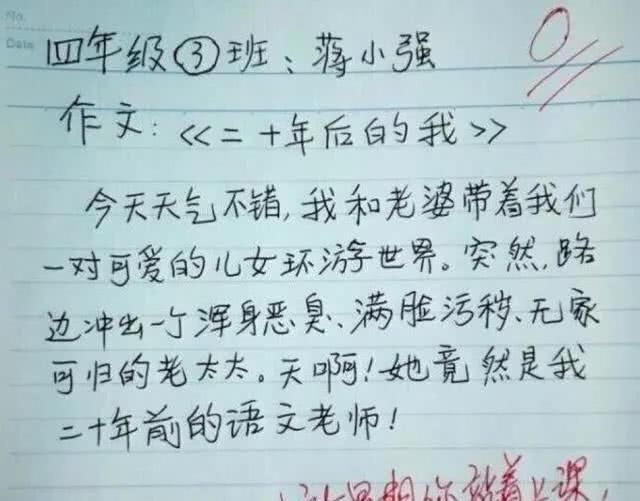 No.
Date
四年级③班:蒋小强
0
作文:<<二十年后的我>>
今天天气不错,我和老婆带着我们
一对可爱的儿女环游世界。突然,路
边冲出一个浑身恶臭、满脸污秽、无家
可归的老太太。天啊!她竟然是我
二十年前的语文老师!
你站着上课,